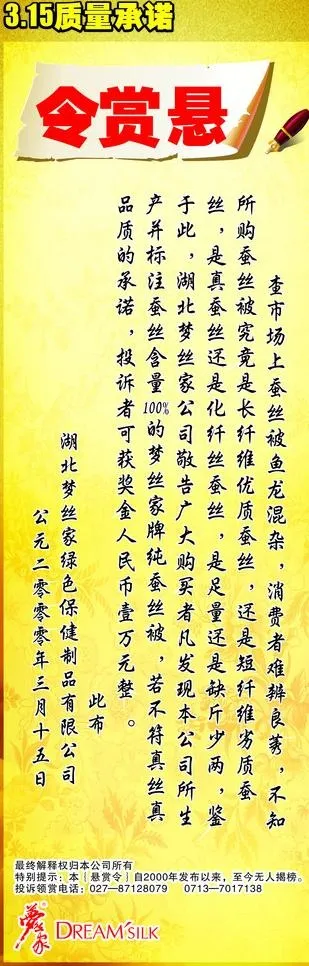 3.15质量承诺
悬赏令
查市场上蚕丝被鱼龙混杂，消费者难辨良莠，不知
所购蚕丝被究竟是长纤维优质蚕丝，还是短纤维劣质蚕
丝，是真蚕丝还是化纤丝蚕丝，是足量还是缺斤少两，鉴
于此，湖北梦丝家公司敬告广大购买者凡发现本公司所生
产并标注蚕丝含量100%的梦丝家牌纯蚕丝被，若不符真丝真
品质的承诺，投诉者可获奖金人民币壹万元整。
此布
湖北梦丝家绿色保健制品有限公司
公元二零零零年三月十五日
最终解释权归本公司所有
特别提示：本〔悬赏令〕自2000年发布以来，至今无人揭榜。
投诉领赏电话：027—87128079 0713—7017138
梦丝家® DREAM'SILK